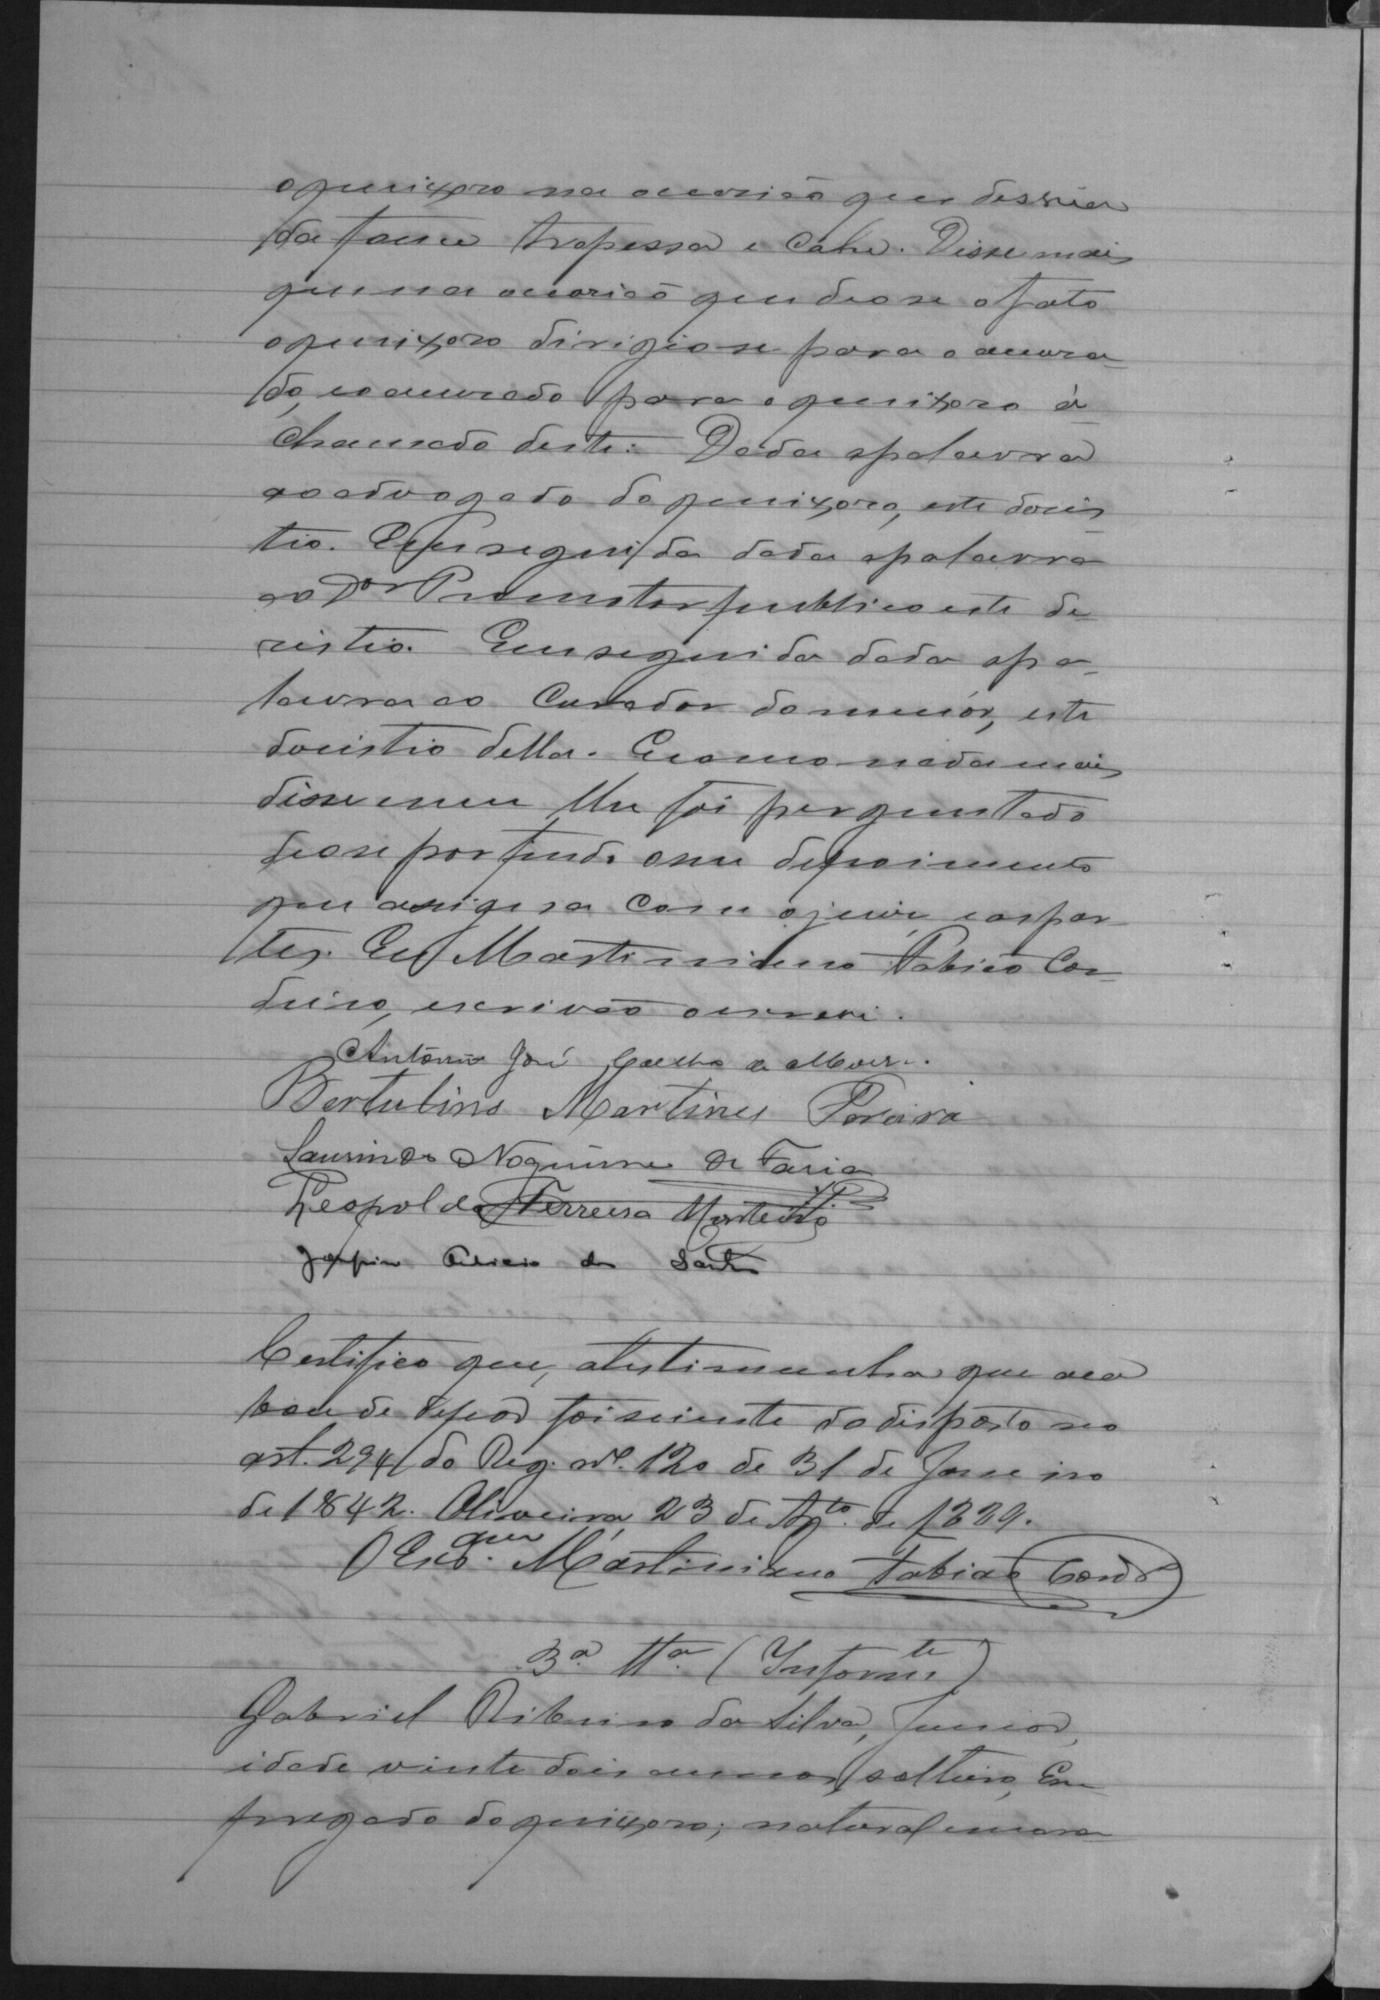 o queixoso na occasião que desvia
da fouce tropessa e cahe. Disse mais
que na occasião que deo-se o fato
o queixoso dirigio-se para o accusa-
do, e o accusado para o queixoso á
chamado deste. Dada a palavra
ao advogado do queixoso, este desis
tio. Em seguida dada a palavra
ao Dor Promotor publico este de
sistio. Em seguida dada a pa-
lavra ao Curador do menór, este
desistio della. E como nada mais
disse e nem lhe foi perguntado
deo-se por findo o seu depoimento
que assigna com o juiz, e as par-
tes. Eu Martiniano Fabião Cor-
deiro, escrivão o escrevi.
Antonio José Coelho de Moura.
Bertulino Martins Pereira
Laurindo Nogueira de Faria
Leopoldo Ferreira Monteiro
Joaquim dos Santos
Certifico que, a testimunha que aca
bou de depôr foi sciente do disposto no
art. 294 do Reg. nº. 120 de 31 de Janeiro
de 1842. Oliveira, 23 de Agto. de 1889.
O Escm. que Martiniano Fabião Cordº
3ª. Ttª. (Informte)
Gabriel Ribeiro da Silva, Junior,
idade vinte dois annos, solteiro, Em
pregado do queixoso; natural e mora